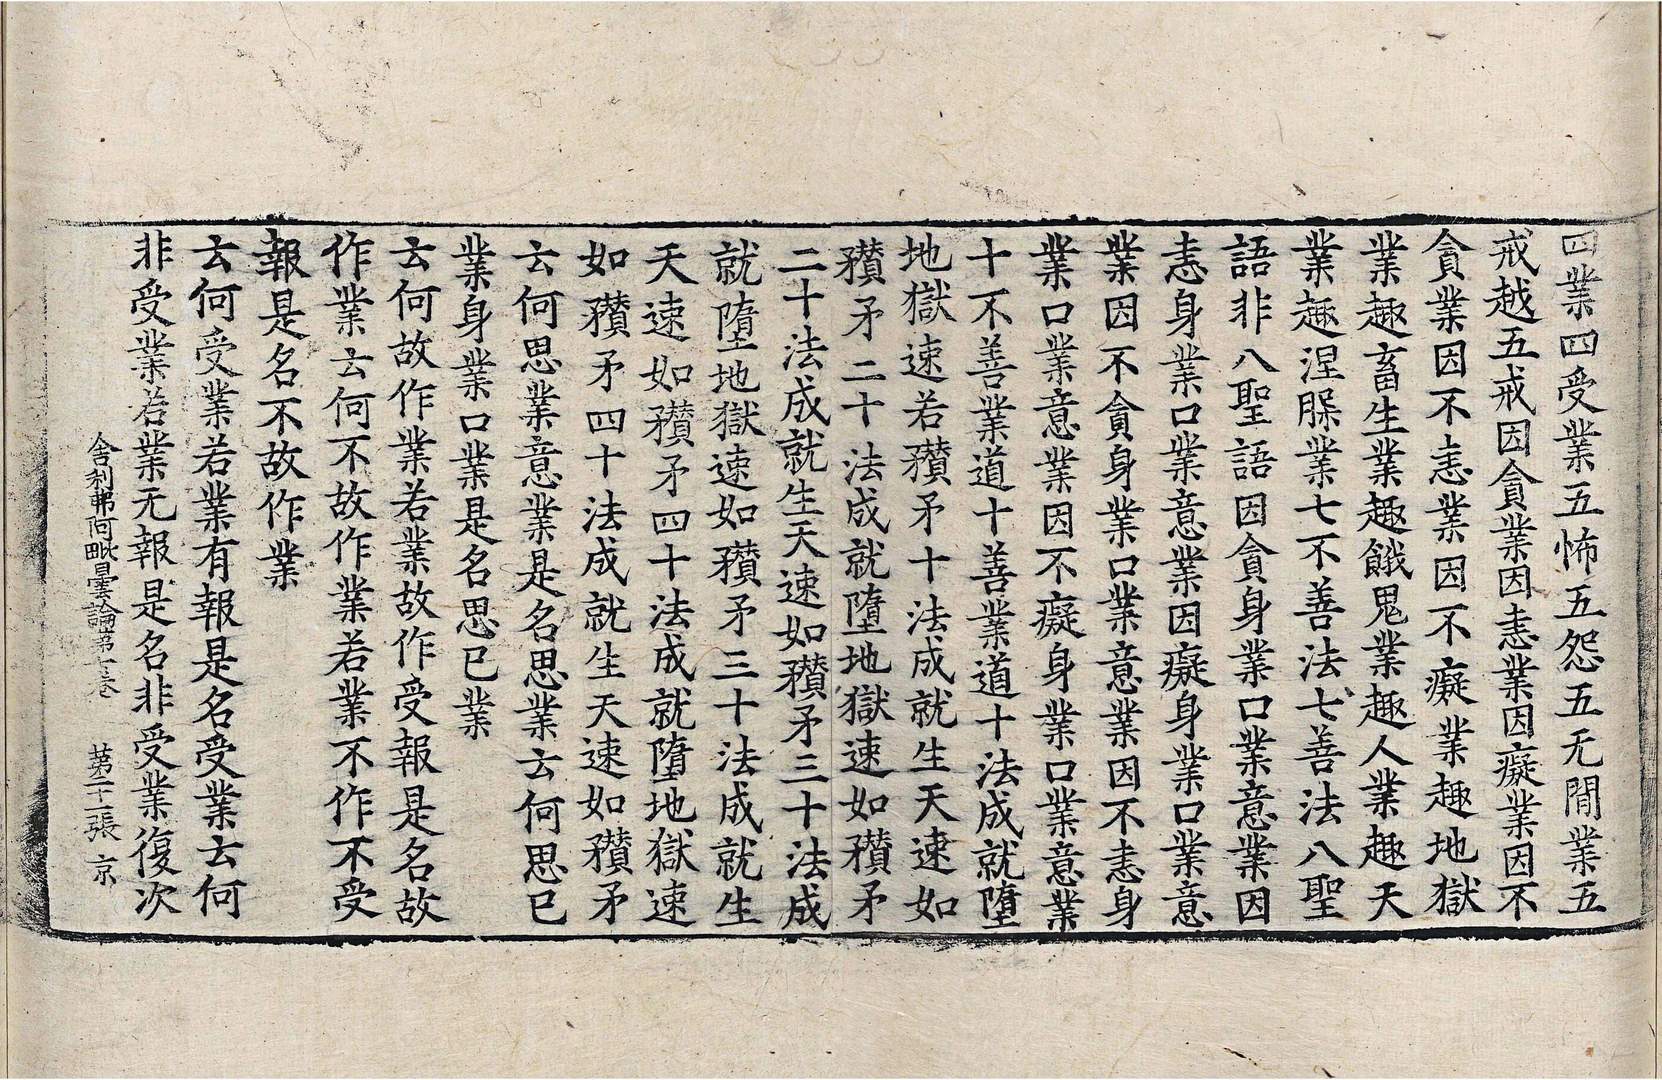 四業四受業五怖五怨五无間業五
戒越五戒因貪業因恚業因癡業因不
貪業因不恚業因不癡業趣地獄
業趣畜生業趣餓鬼業趣人業趣天
業趣涅槃業七不善法七善法八聖
語非八聖語因貪身業口業意業因
恚身業口業意業因癡身業口業意
業因不貪身業口業意業因不恚身
業口業意業因不癡身業口業意業
十不善業道十善業道十法成就墮
地獄速若𥎞矛十法成就生天速如
𥎞矛二十法成就墮地獄速如𥎞矛
二十法成就生天速如𥎞矛三十法成
就墮地獄速如𥎞矛三十法成就生
天速如𥎞矛四十法成就墮地獄速
如𥎞矛四十法成就生天速如𥎞矛
云何思業意業是名思業云何思已
業身業口業是名思已業
云何故作業若業故作受報是名故
作業云何不故作業若業不作不受
報是名不故作業
云何受業若業有報是名受業云何
非受業若業无報是名非受業復次
舍利弗阿毗曇論第七卷 第二十張 京